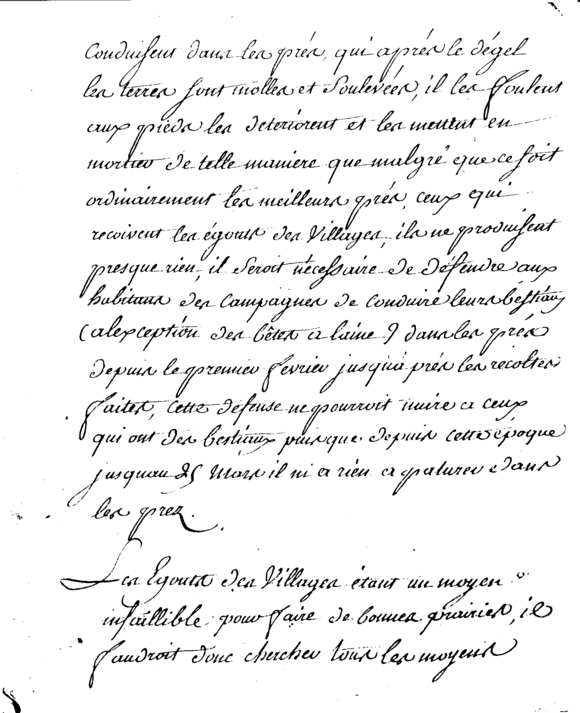 Conduisent dans les prés, qui aprés le dégel
les terres sont molles et Soulevées, il les foulent
aux pieds les deteriorent et les mettent en
mortier de telle maniere que malgré que ce soit
ordinairement les meilleurs prés, ceux qui
recoivent les égouts des Villages, ils ne produisent
presque rien, il Seroit nécessaire de défendre aux
habitans des Campagnes de Conduire leurs bestiaux
(alexception des bêtes a laine) dans les prés
depuis le premier fevrier jusqu'a prés les recoltes
faites, Cette défense ne pourroit nuire a ceux
qui ont des bestiaux puisque depuis cette époque
jusquau 25 Mars il ni a rien a paturer dans
les prez.
Les Egouts des Villages étant un moyen
infaillible pour faire de bonnes prairies, il
faudroit donc chercher tous les moyens